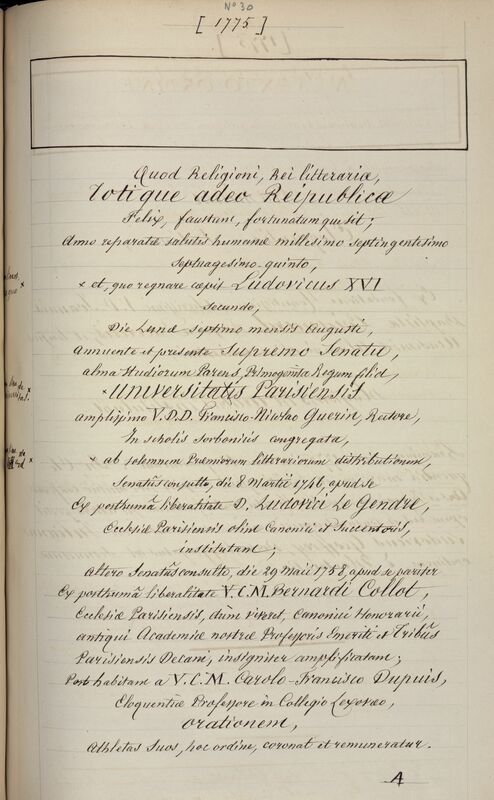 Nº 30
[ 1775 ]
Quod Religioni, Rei litterariæ,
Totique adeo Reipublicæ
Felix, faustum, fortunatumque sit;
Anno reparatæ salutis humanæ millesimo septingentesimo
Septuagesimo-quinto,
× et, quo regnare cœpit Ludovicus XVI
secundo,
Die Lunæ septimo mensis Augusti,
annuente et præsente Supremo Senatu,
alma Studiorum Parens, Primogenita Regum filia,
× Universitatis Parisiensis
amplissimo V. D. D. Francisco-Nicolao Guerin, Rectore,
In scholis sorbonicis congregata,
× ab solemnem Præmiorum litterariorum distributionem,
Senatus consulto, die 8 Martii 1746, apud se
Ex posthumâ liberalitate D. Ludovici Le Gendre,
Ecclesiæ Parisiensis olim Canonici et Succentoris,
institutam;
Altero Senatûs consulto, die 29 Maii 1758, apud se pariter
Ex posthumâ liberalitate V. C. M. Bernardi Collot,
Ecclesiæ Parisiensis, dum viveret, Canonici Honorarii,
antiqui Academiæ nostræ Professoris Emeriti et Tribûs
Parisiensis Decani, insigniter amplificatam;
Post habitam a V. C. M. Carolo-Francisco Dupuis,
Eloquentiæ Professore in Collegio Lexovæo,
orationem,
Athletas Suos, hoc ordine, coronat et remuneratur.
A